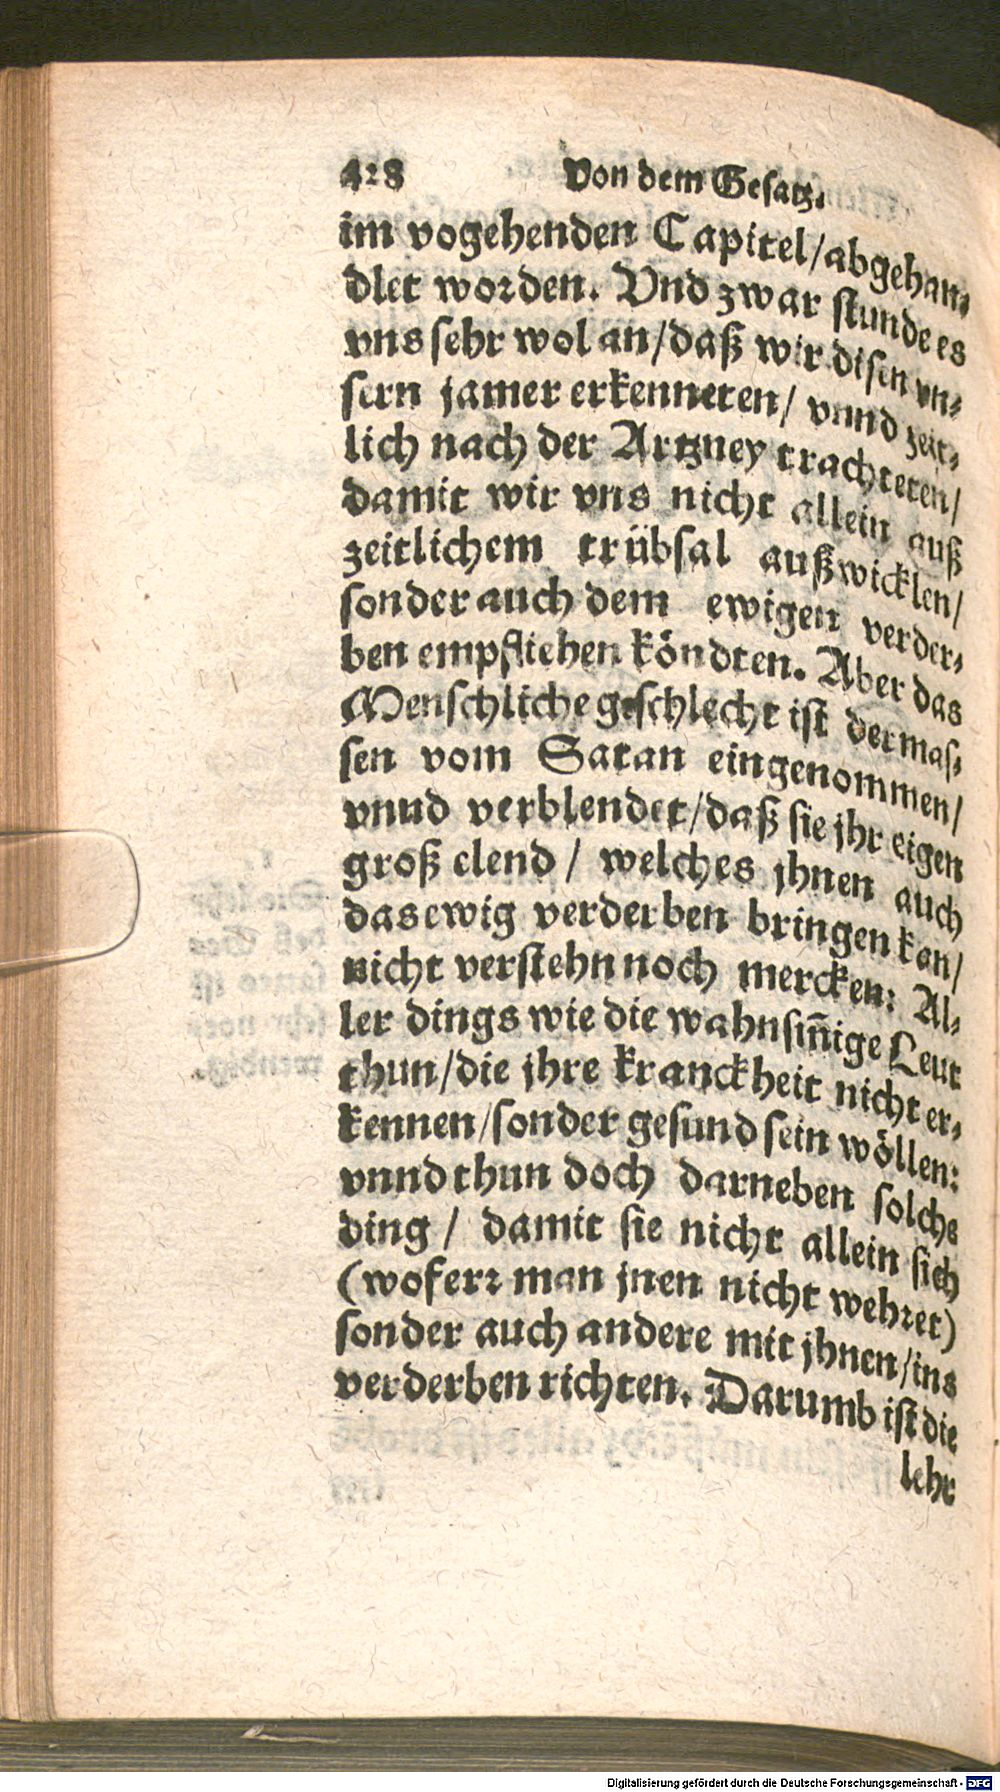 428 Von dem Gesatz.
im vogehenden Capitel/abgehan-
dlet worden. Vnd zwar stunde es
vns sehr wol an/daß wir disen vn-
sern jamer erkenneten/ vnnd zeit-
lich nach der Artzney trachteten/
damit wir vns nicht allein auß
zeitlichem trübsal außwicklen/
sonder auch dem ewigen verder-
ben empfliehen köndten. Aber das
Menschliche geschlecht ist dermas-
sen vom Satan eingenommen/
vnnd verblendet/daß sie jhr eigen
groß elend/ welches jhnen auch
das ewig verderben bringen kan/
nicht verstehn noch mercken: Al-
ler dings wie die wahnsiñige Leut
thun/die jhre kranckheit nicht er-
kennen/sonder gesund sein wöllen:
vnnd thun doch darneben solche
ding/ damit sie nicht allein sich
(wofern man jnen nicht wehret)
sonder auch andere mit jhnen/ins
verderben richten. Darumb ist die
lehr
Digitalisierung gefördert durch die Deutsche Forschungsgemeinschaft - DFG